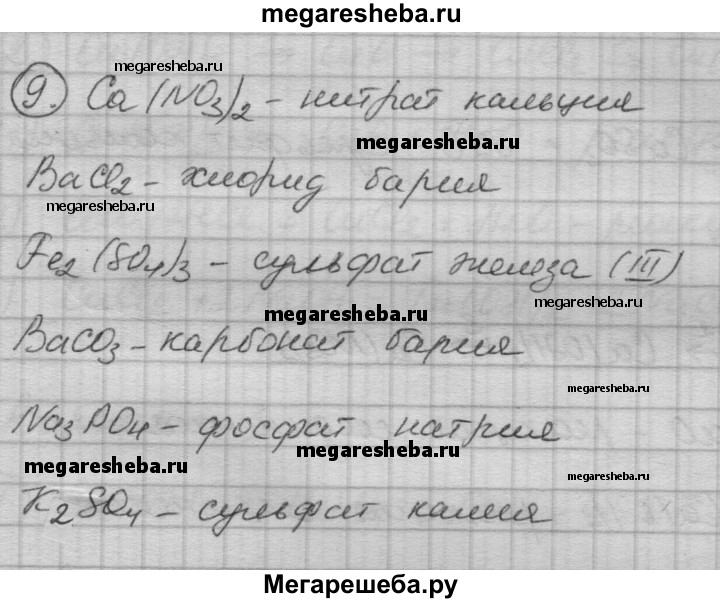 megaresheba.ru
megaresheba.ru
9. Ca(NO3)2 – нитрат кальция
megaresheba.ru
BaCl2 – хлорид бария
megaresheba.ru
Fe2(SO4)3 – сульфат железа (III)
megaresheba.ru
megaresheba.ru
BaCO3 – карбонат бария
megaresheba.ru
Na3PO4 – фосфат натрия
megaresheba.ru
megaresheba.ru
megaresheba.ru
K2SO4 – сульфат калия
Мегарешеба.ру